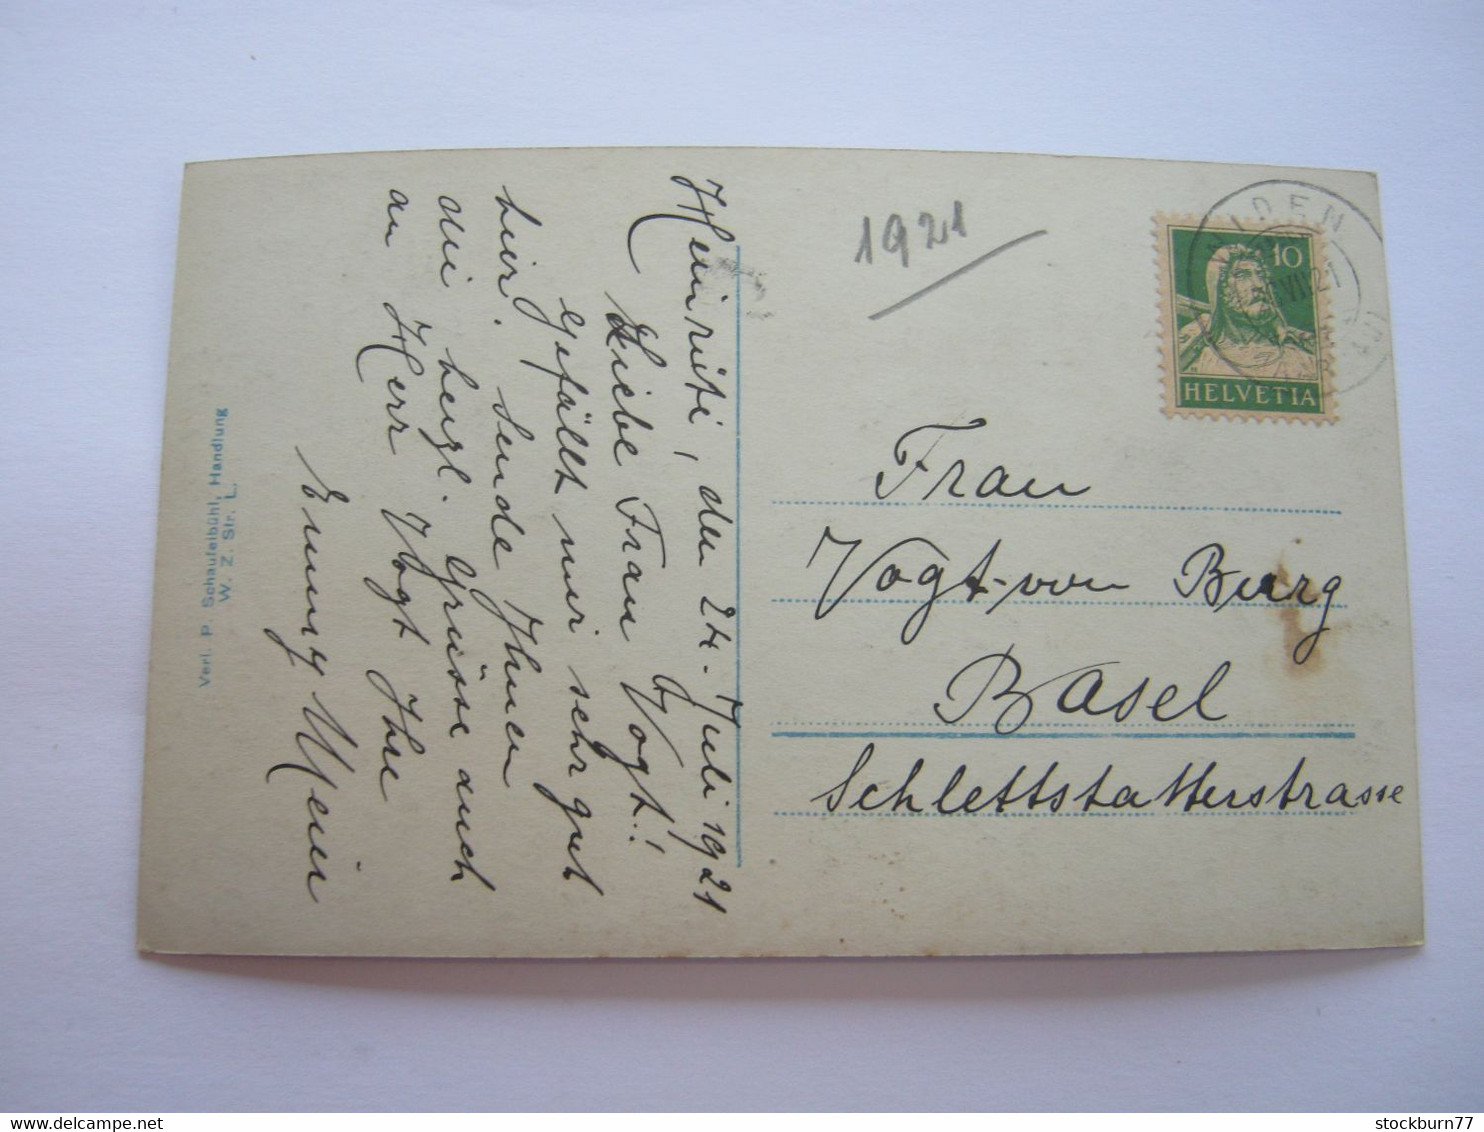 Heinrüti, den 24. Juli 1921
Liebe Frau Vogt!!
Gefällt mir sehr gut
hier. Sende Ihnen
die herzl. Grüsse auch
an Herr Vogt Ihre
Emmy Meier
Verl. P. Schaufelbühl, Handlung
W. Z. Str. L.
1921
10
HELVETIA
Frau
Vogt-von Burg
Basel
Schlettstatterstrasse
delcampe.net
stockburn77